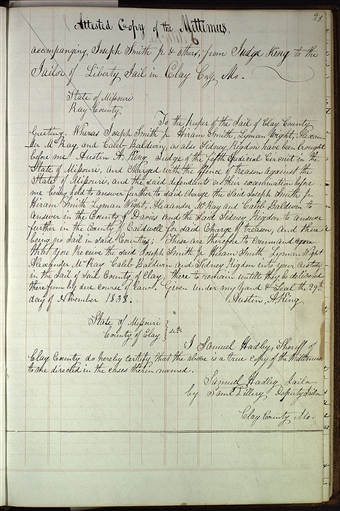 29
Attested Copy of the Mittimus,
accompanying, Joseph Smith Jr & others, from Judge King to the
Jailor of Liberty Jail in Clay Coy. Mo.
State of Missouri
Ray County.
To the keeper of the Jail of Clay County
Greeting. Whereas Joseph Smith Jr Hiram Smith, Lyman Wight, Alexan
der McRay, and Caleb Baldwin, as also Sidney Rigdon have been brought
before me Austin A. King, Judge of the Fifth Judicial Circuit in the
State of Missouri, and Charged with the offence of treason against the
State of Missouri, and the said defendants on their examination before
me being held to answer further to said charge, the said Joseph Smith Jr
Hiram Smith Lyman Wight, Alexander McRay and Caleb Baldwin to
answer in the County of Davis and the said Sidney Rigdon to answer
further in the County of Caldwell for said Charge of treason, and there
being no Jail in said Counties; These are therefore to command you
that you receive the said Joseph Smith Jr, Hiram Smith, Lyman Wight
Alexander McRay Caleb Baldwin and Sidney Rigdon into your custody
in the Jail of said County of Clay, there to remain untill they be delivered
therefrom by due course of Law. Given under my hand & Seal the 29th
day of November 1838.
Austin A King.
State of Missouri
County of Clay
I Samuel Hadley, Sheriff of
Clay County do hereby certify that the above is a true Copy of the Mittimus
to me directed in the cases therein named.
Samuel Hadley Jailor
by Saml Tillery, Deputy Jailor
Clay County, Mo.